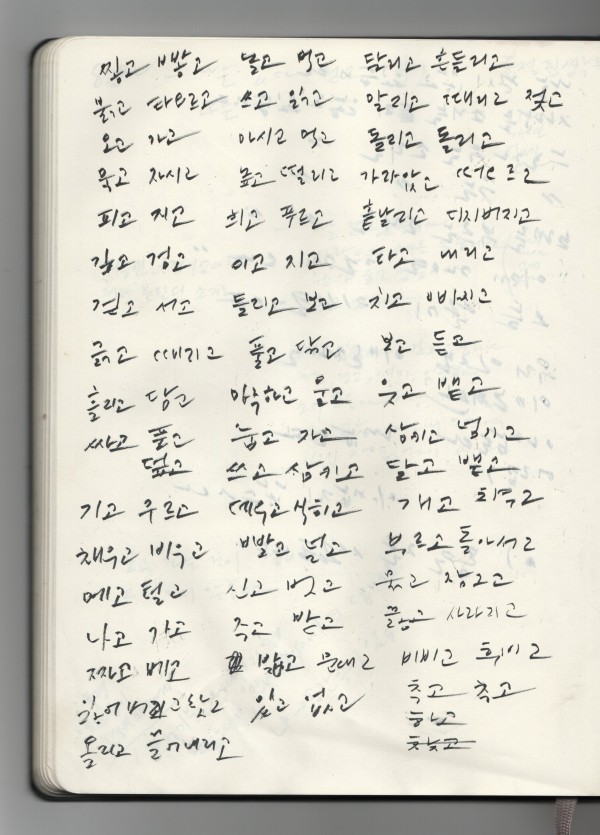 찧고 빻고 널고 먹고 달리고 흔들리고
붉고 타오르고 쓰고 읽고 말리고 때리고 젖고
오고 가고 마시고 먹고 돌리고 돌리고
묵고 자시고 떨리고 가라앉고 떠오르고
피고 지고 희고 푸르고 흩날리고 디지버지고
감고 이고 지고 타고 내리고
걷고 서고 들리고 보고 치고 빠지고
긁고 때리고 풀고 닦고 보고 듣고
흘리고 담고 마주하고 웃고 뱉고
싸고 풀고 눕고 자고 삼키고 넘기고
덮고 쓰고 삼키고 달고 뱉고
기고 구르고 데우고 식히고 개고
채우고 비우고 빨고 널고 부르고 돌아서고
메고 털고 신고 벗고 묶고 잠그고
나고 가고 주고 받고 끓고 사라지고
짜고 베고 밟고 문대고 비비고 휘이고
있고 없고 축고 축고
하고
올리고 끌어내리고